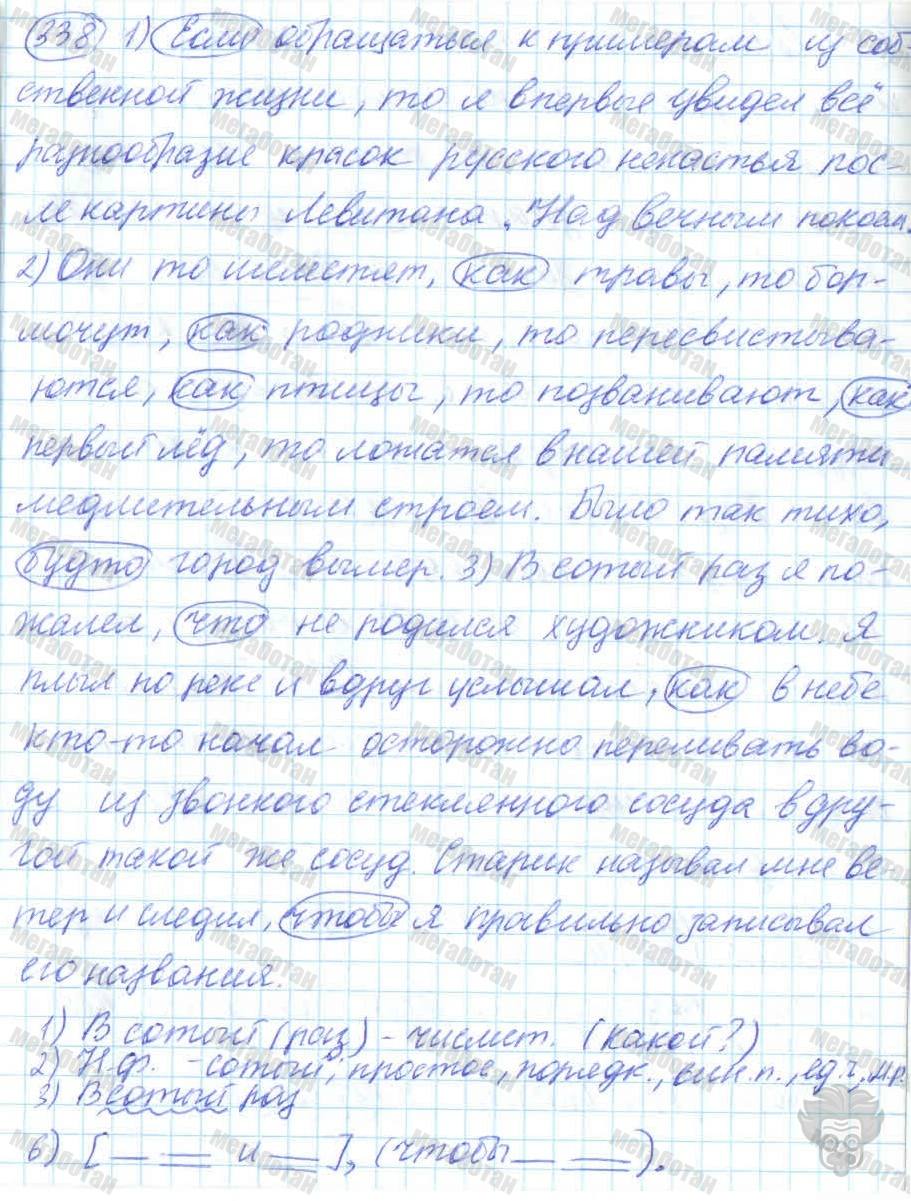 338 1) Если обращаться к примерам из соб-
ственной жизни, то я впервые увидел всё
разнообразие красок русского ненастья пос-
ле картины Левитана „Над вечным покоем.
2) Они то шелестят, как травы, то бор-
мочут, как родники, то пересвистыва-
ются, как птицы, то позванивают, как
первый лёд, то ложатся в нашей памяти
медлительным строем. Было так тихо,
будто город вымер. 3) В сотый раз я по-
жалел, что не родился художником. Я
плыл по реке и вдруг услышал, как в небе
кто-то начал осторожно переливать во-
ду из звонкого стеклянного сосуда в дру-
гой такой же сосуд. Старик называл мне ве-
тер и следил, чтобы я правильно записывал
его названия.
1) В сотый (раз) - числит. (какой?)
2) Н.ф. - сотый; простое, порядк., вин.п., ед.ч., м.р.
3) В сотый раз
6) [__ __ и __], (чтобы __ __).
МегаБотан